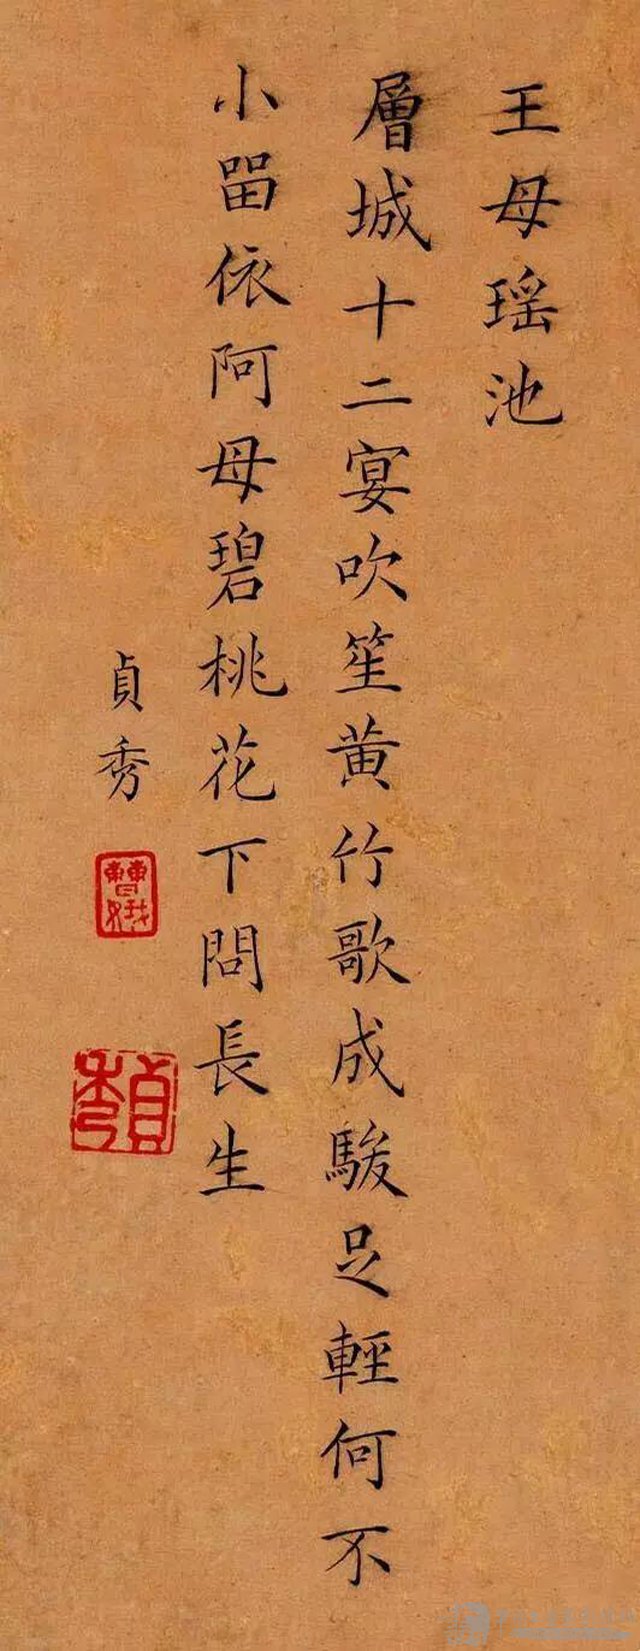 王母瑶池
層城十二宴吹笙黄竹歌成駿足輕何不
小畱依阿母碧桃花下問長生
貞秀
曹娥
貞秀